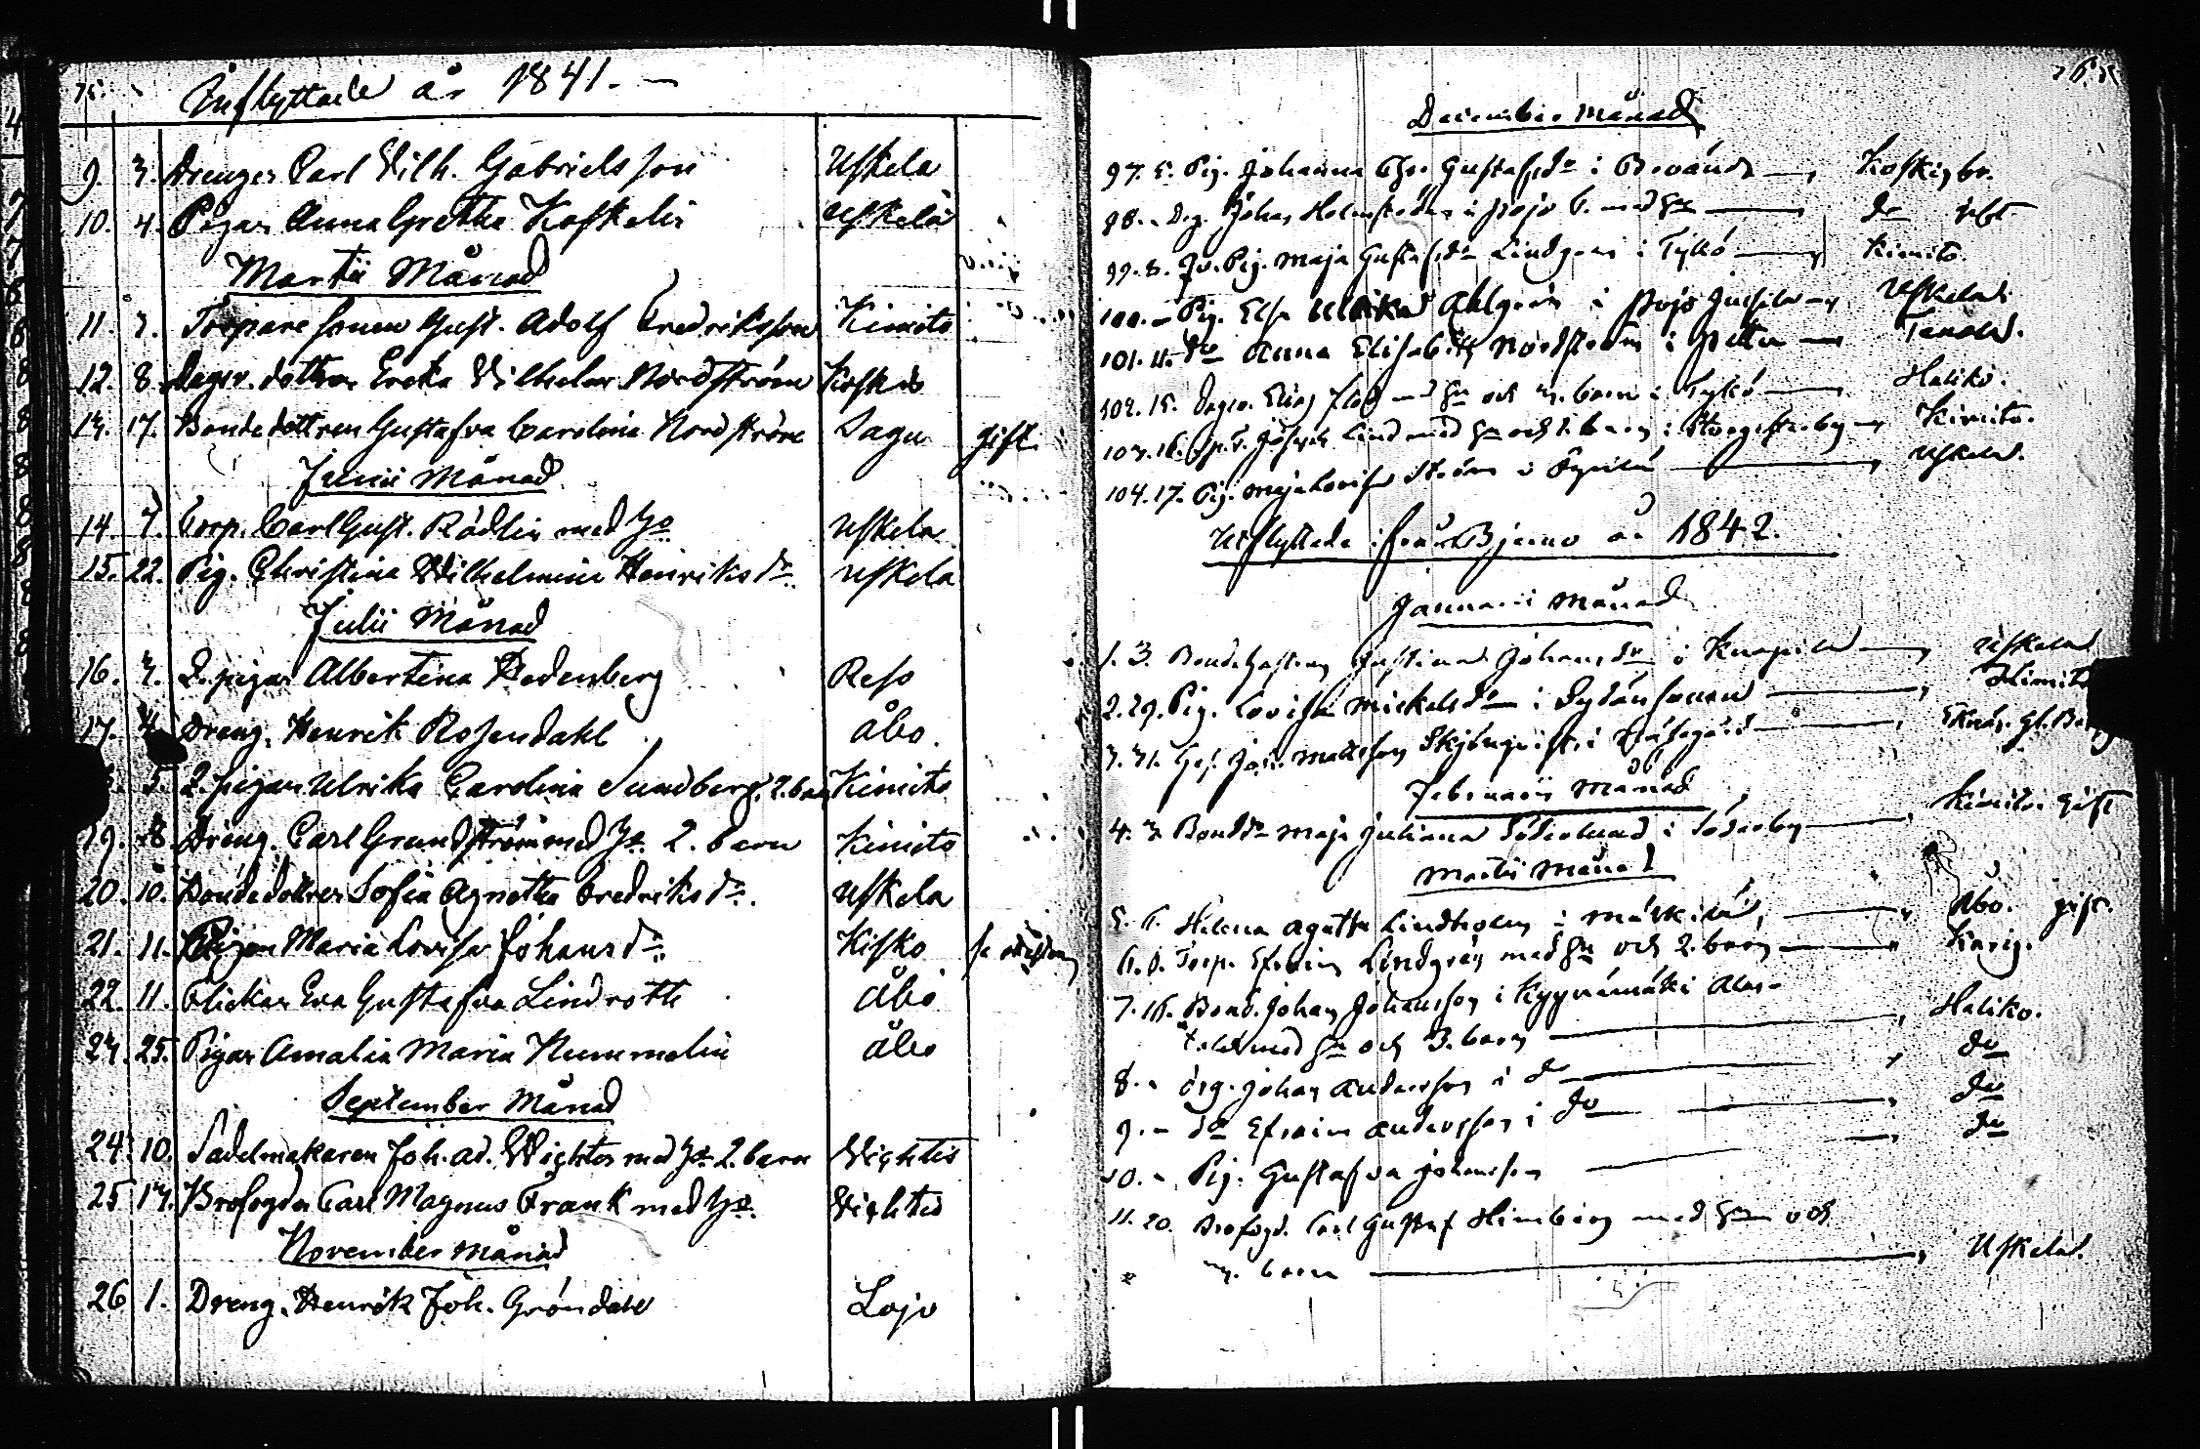 75.
Inflyttade år 1841. —
9. 3. Drengen Carl Vilh. Gabrielsson Uskela
10. 4. Pigan Anna Gretha Koskelin Uskela
Martii Månad
11. 3. Torparesonen Gust. Adolf Fredriksson Kimito
12. 8. Dagsv. dottren Ereka Vilhelm. Nordström Koskis
13. 17. Bondedottren Gustafva Carolina Nordström Sagu gift
Junii Månad
14. 7. Corp. Carl Gust. Rödlin med Ho Uskela
15. 22. Pig. Christina Wilhelmina Henriksdr Uskela
Julii Månad
16. 3. Q. pigan Albertina Redenberg Reso
17. 4. Dreng. Henrik Rosendahl Åbo.
5. Q. pigan Ulrika Carolina Sundberg. 2. barn Kimito
19. 8. Dreng. Carl Grundström med Ho 2. barn Kimito
20. 10. Bondedottren Sofia Agnetha Fredriksdr. Uskela
21. 11. Pigan Maria Lovisa Johansdr. Kisko
22. 11. Flickan Eva Gustafva Lindroth Åbo
23. 25. Pigan Amalia Maria Nummelin Åbo
September Månad
24. 10. Sadelmakaren Joh. Ad. Wichter med Ho 2. barn Vichtis
25 13. Brofogden Carl Magnus Frank med Ho. Vichtis
November Månad
26 1. Dreng. Henrik Joh. Gröndahl Lojo
76.
December Månad
97. 5. Pig. Johanna Chr. Gustafsdr i — Koskis br.
98. - Drg. Johan Holmström i Pojo b. med Hu — do
99. 8. Pig. Maja Gustafsdr Lindgren i Tykö — Kimito.
100. - Pig. Elsa Ulrika Ahlgren i Pojo — Uskela.
101. 11. do Anna Elisabeth Nordström i — Tenala.
102. 15. Dagsv. Elias Flod med Hu och 3. barn i Tykö — Haliko.
103. 16. Joseph Lind med Hu och 2. barn i — Kimito.
104. 17. Pig. Maja Lovisa Ström i — Uskela.
Utflyttade ifrån Bjerno år 1842.
Januarii Månad
1. 3. Justina Johansdr i Knapila — Uskela
2. 29. Pig. Lovisa Mickelsdr i — Kimito
3. 31. Joh. Mattsson Skjönqvist i —
Februarii Månad
4. 3. Bonddr Maja Juliana Söderlund i Söderby — Kimito. gift
Martii Månad
5. 6. Helena Agatha Lindholm i — Åbo. gift.
6. 8. Torp. Efraim Lindgren med Hu och 2. barn — Karis.
7. 16. Bond. Johan Johansson i Kyynämäki
med Hu och 3. barn — Haliko.
8. - Drg. Johan Andersson i do — do
9. - do Efraim Andersson i do — do
10. - Pig. Gustafva Johansson — do
11. 20. Brofogd. Carl Gustaf Himberg med Hu och
" 3. barn — Uskela.